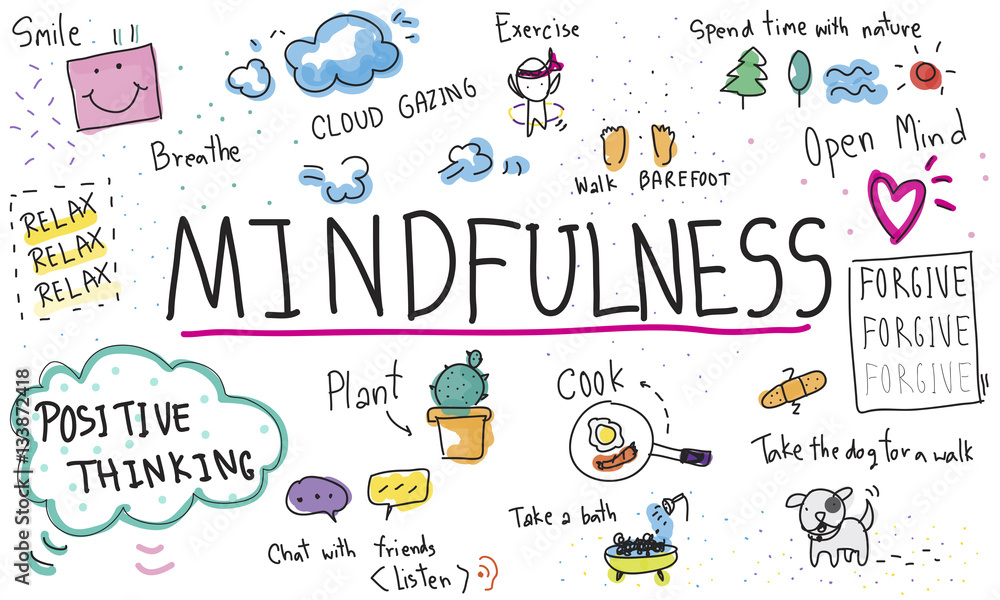 Smile
Exercise
Spend time with nature
CLOUD GAZING
Breathe
Open Mind
Walk BAREFOOT
RELAX
RELAX
RELAX
MINDFULNESS
FORGIVE
FORGIVE
FORGIVE
POSITIVE
THINKING
Plant
Cook
Take the dog for a walk
Take a bath
Chat with friends
<Listen>
Adobe Stock | #133872418